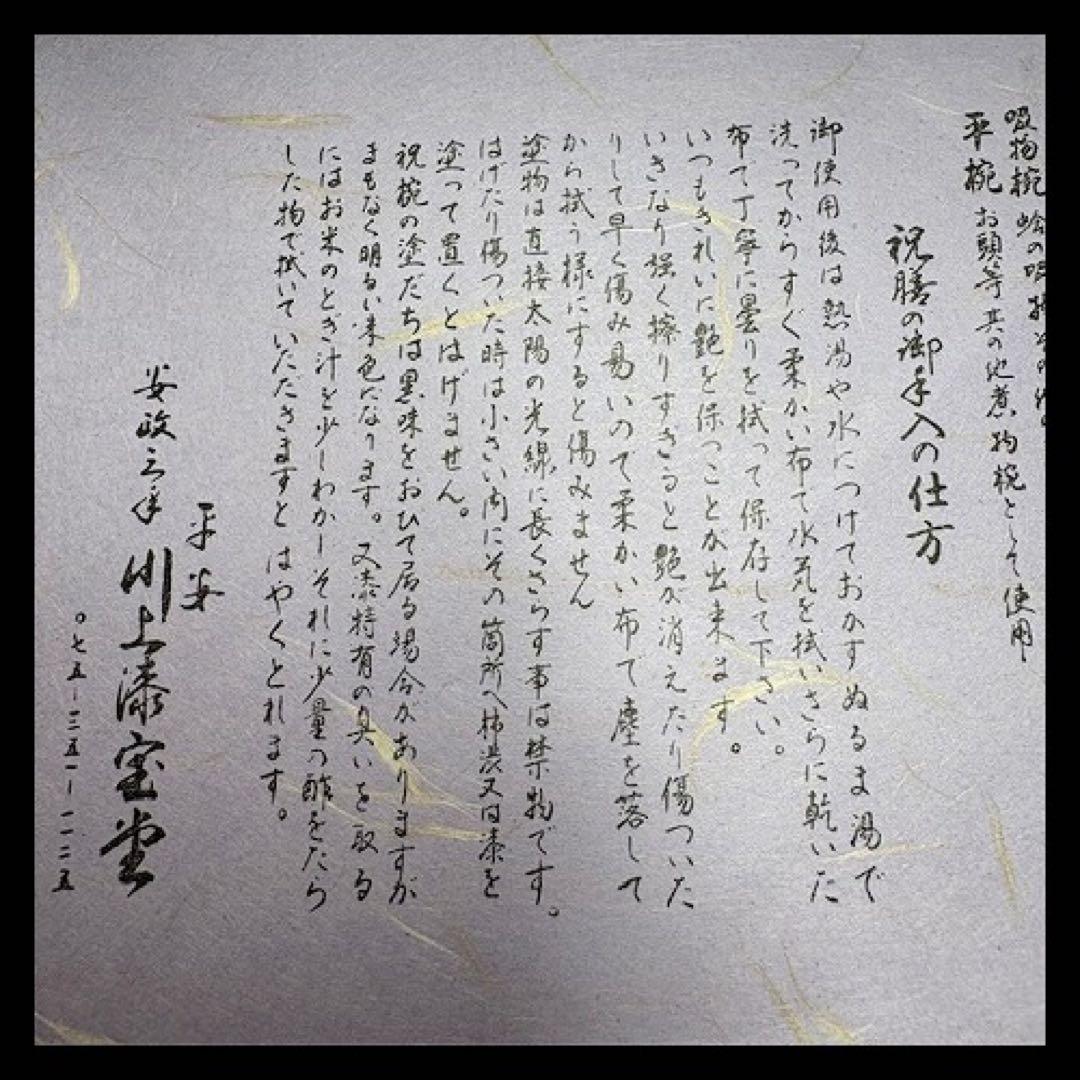 吸物椀 蛤の吸物
平椀 お頭等其の他煮物椀として使用
祝膳の御手入の仕方
御使用後は熱湯や水につけておかすぬるま湯で
洗ってからすぐ柔かい布て水気を拭いさらに乾いた
布て丁寧に曇りを拭って保存して下さい。
いつもきれいに艶を保つことが出来ます。
いきなり強く擦りすきると艶が消えたり傷ついた
りして早く傷み易いのて柔かい布て塵を落して
から拭う様にすると傷みません
塗物は直接太陽の光線に長くさらす事は禁物です。
はげたり傷ついた時は小さい内にその箇所へ柿渋又は漆を
塗って置くとはげません。
祝椀の塗だちは黒味をおびて居る場合がありますが
まもなく明るい朱色になります。又漆特有の臭いを取る
にはお米のとぎ汁を少しわかしそれに少量の酢をたら
した物で拭いていただきますとはやくとれます。
平安
安政三年 川上漆宝堂
〇七五-三五一-一一二五